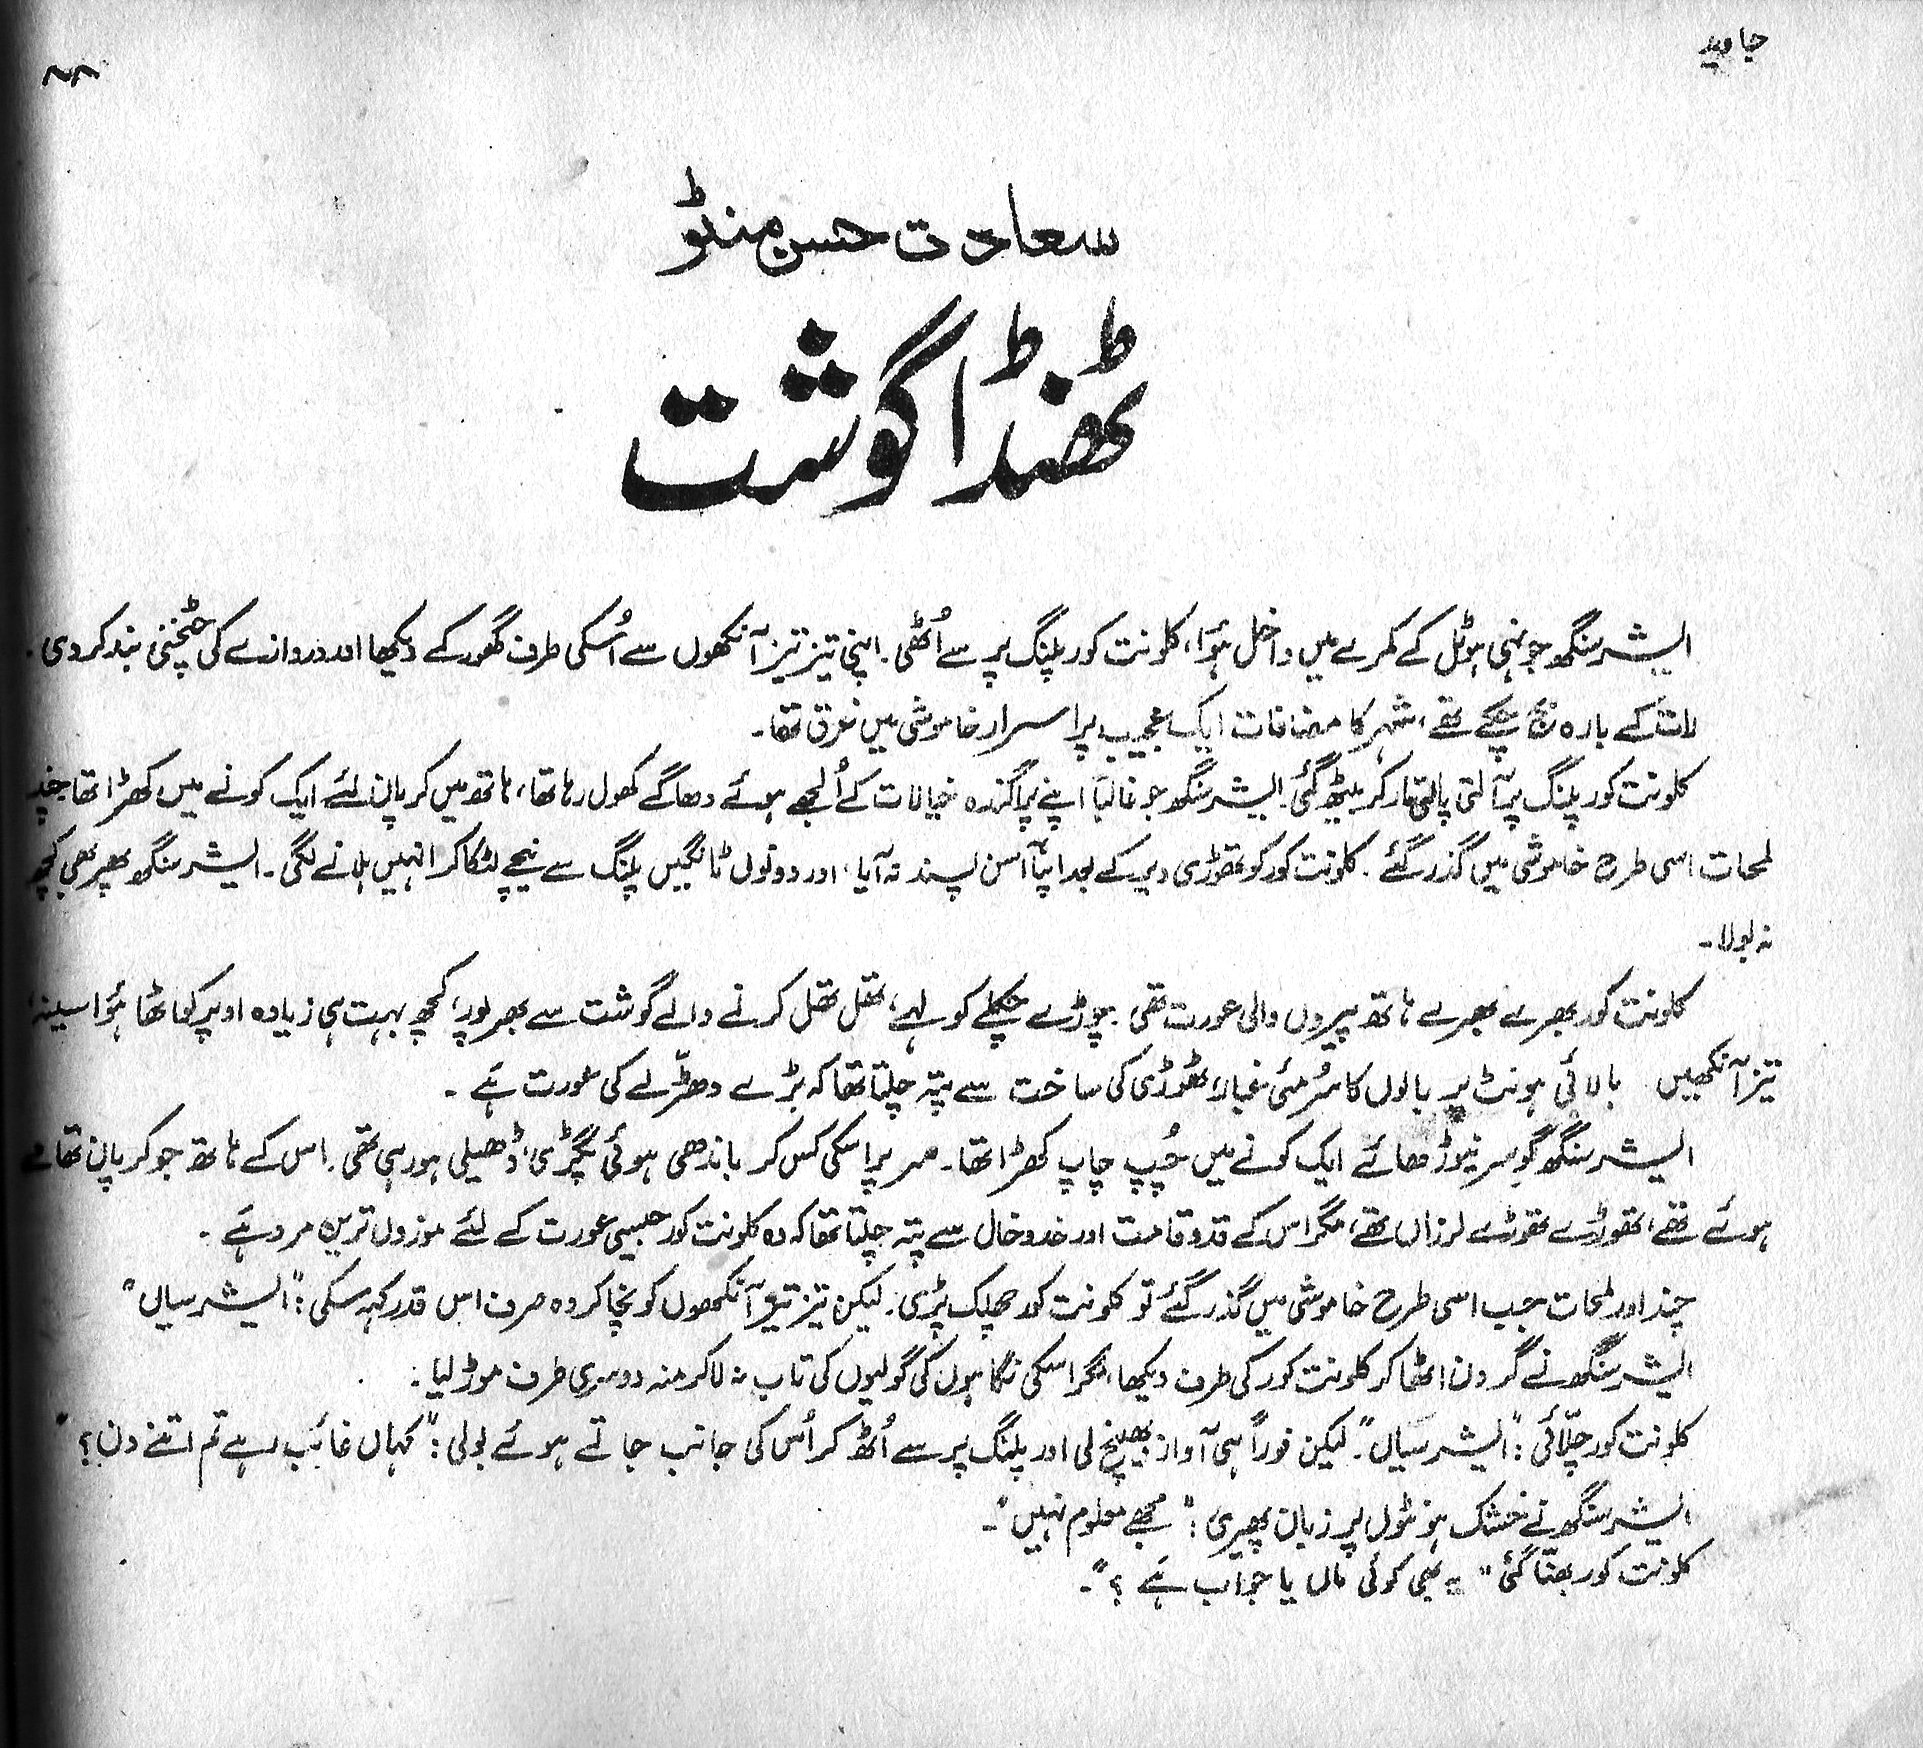 جاوید
۸۸
سعادت حسن منٹو
ٹھنڈا گوشت
ایشر سنگھ جونہی ہوٹل کے کمرے میں داخل ہوٴا، کلونت کور پلنگ پر سے اُٹھی۔ اپنی تیز تیز آنکھوں سے اُسکی طرف گھور کے دیکھا اور دروازے کی چٹخنی بند کر دی۔
رات کے بارہ بج چکے تھے، شہر کا مضافات ایک عجیب پراسرار خاموشی میں غرق تھا۔
کلونت کور پلنگ پر آلتی پالتی مار کر بیٹھ گئی۔ ایشر سنگھ جو غالباً اپنے پراگندہ خیالات کے اُلجھے ہوئے دھاگے کھول رہا تھا، ہاتھ میں کرپان لئے ایک کونے میں کھڑا تھا۔ چند
لمحات اسی طرح خاموشی میں گذر گئے۔ کلونت کور کو تھوڑی دیر کے بعد اپنا آسن پسند نہ آیا، اور دونوں ٹانگیں پلنگ سے نیچے لٹکا کر انہیں ہلانے لگی۔ ایشر سنگھ پھر بھی کچھ
نہ بولا۔
کلونت کور بھرے بھرے ہاتھ پیروں والی عورت تھی۔ چوڑے چکلے کولہے، تھل تھل کرنے والے گوشت سے بھرپور، کچھ بہت ہی زیادہ اوپر کو اٹھا ہوٴا سینہ،
تیز آنکھیں بالائی ہونٹ پر بالوں کا سُرمئی غبار، ٹھوڑی کی ساخت سے پتہ چلتا تھا کہ بڑے دھڑلّے کی عورت ہے۔
ایشر سنگھ گو سر نیوڑھائے ایک کونے میں چُپ چاپ کھڑا تھا۔ سر پر اسکی کس کر باندھی ہوئی پگڑی، ڈھیلی ہو رہی تھی۔ اس کے ہاتھ جو کرپان تھامے
ہوئے تھے، تھوڑے تھوڑے لرزاں تھے، مگر اس کے قد و قامت اور خد و خال سے پتہ چلتا تھا کہ وہ کلونت کور جیسی عورت کے لئے موزوں ترین مرد ہے۔
چند اور لمحات جب اسی طرح خاموشی میں گذر گئے تو کلونت کور چھلک پڑی۔ لیکن تیز تیز آنکھوں کو نچا کر وہ صرف اس قدر کہہ سکی: "ایشر سیاں"
ایشر سنگھ نے گردن اٹھا کر کلونت کور کی طرف دیکھا، مگر اسکی نگاہوں کی گولیوں کی تاب نہ لا کر منہ دوسری طرف موڑ لیا۔
کلونت کور چلّائی: "ایشر سیاں"۔ لیکن فوراً ہی آواز بھینچ لی اور پلنگ پر سے اُٹھ کر اُس کی جانب جاتے ہوئے بولی: "کہاں غائب رہے تم اتنے دن؟"
ایشر سنگھ نے خشک ہونٹوں پر زبان پھیری: "مجھے معلوم نہیں"۔
کلونت کور بھنّا گئی "یہ بھی کوئی ماں یا جواب ہے؟"۔